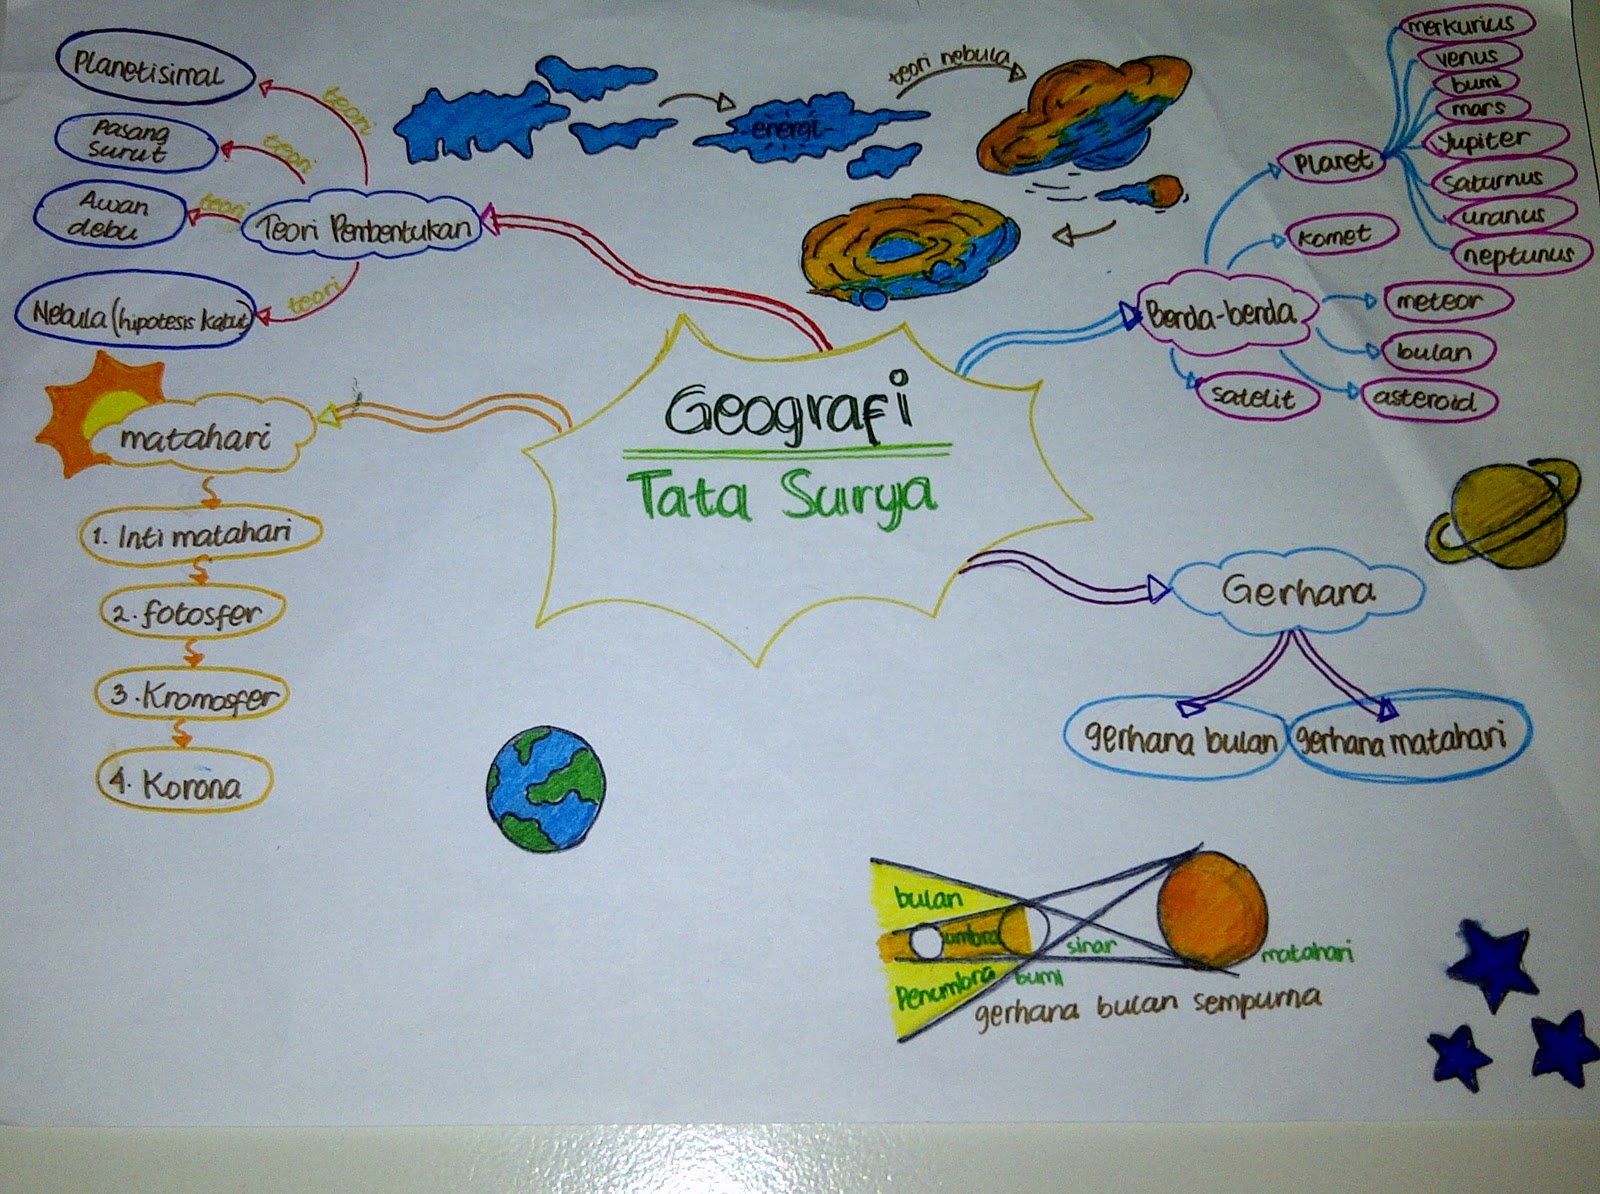 Geografi
Tata Surya
Teori Pembentukan
teori
Planetisimal
teori
Pasang
Surut
teori
Awan
debu
teori
Nebula (hipotesis kabut)
energi
teori nebula
matahari
1. Inti matahari
2. fotosfer
3. Kromosfer
4. Korona
Benda-benda
Planet
merkurius
venus
bumi
mars
yupiter
saturnus
uranus
neptunus
komet
meteor
bulan
asteroid
satelit
Gerhana
gerhana bulan
gerhana matahari
bulan
umbra
Penumbra
bumi
sinar
matahari
gerhana bulan sempurna